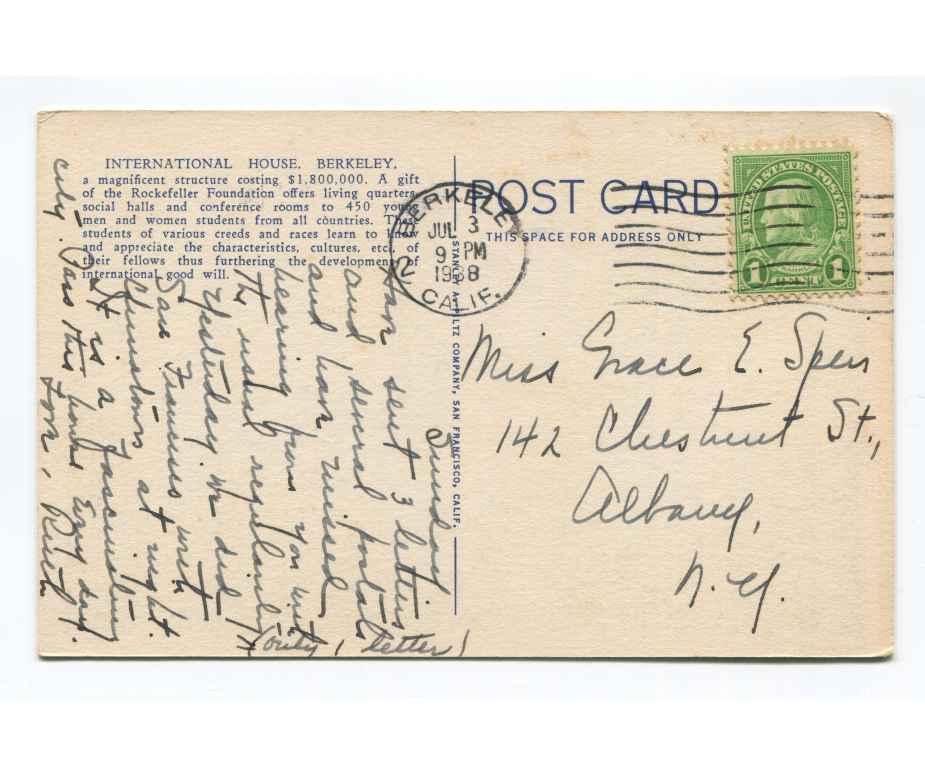 INTERNATIONAL HOUSE, BERKELEY,
a magnificent structure costing $1,800,000. A gift
of the Rockefeller Foundation offers living quarters,
social halls and conference rooms to 450 young
men and women students from all countries. These
students of various creeds and races learn to know
and appreciate the characteristics, cultures, etc., of
their fellows thus furthering the development of
international good will.
POST CARD
THIS SPACE FOR ADDRESS ONLY
BERKELEY
JUL 3
9 PM
1938
CALIF.
2
UNITED STATES POSTAGE
1 CENT 1
STANLEY A. PILTZ COMPANY, SAN FRANCISCO, CALIF.
Miss Grace E. Speir
142 Chestnut St.,
Albany,
N.Y.
Sunday
Have sent 3 letters
and several postals
and have missed
hearing from you with
the usual regularity
(only 1 letter)
Yesterday we did
San Francisco with
Chinatown at night.
It is a fascinating
city. Pass this house every day.
Love, Ruth